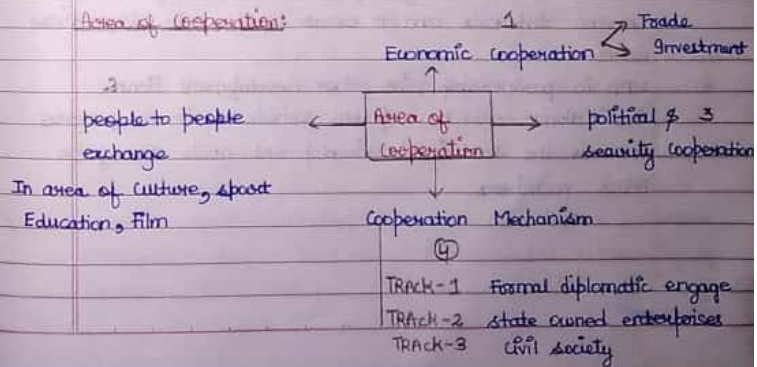 Area of Cooperation:
1
Economic cooperation
Trade
Investment
2
people to people
exchange
In area of culture, sport
Education, Film
Area of
Cooperation
political & 3
security cooperation
Cooperation Mechanism
4
TRACK-1 Formal diplomatic engage
TRACK-2 state owned enterprises
TRACK-3 Civil society